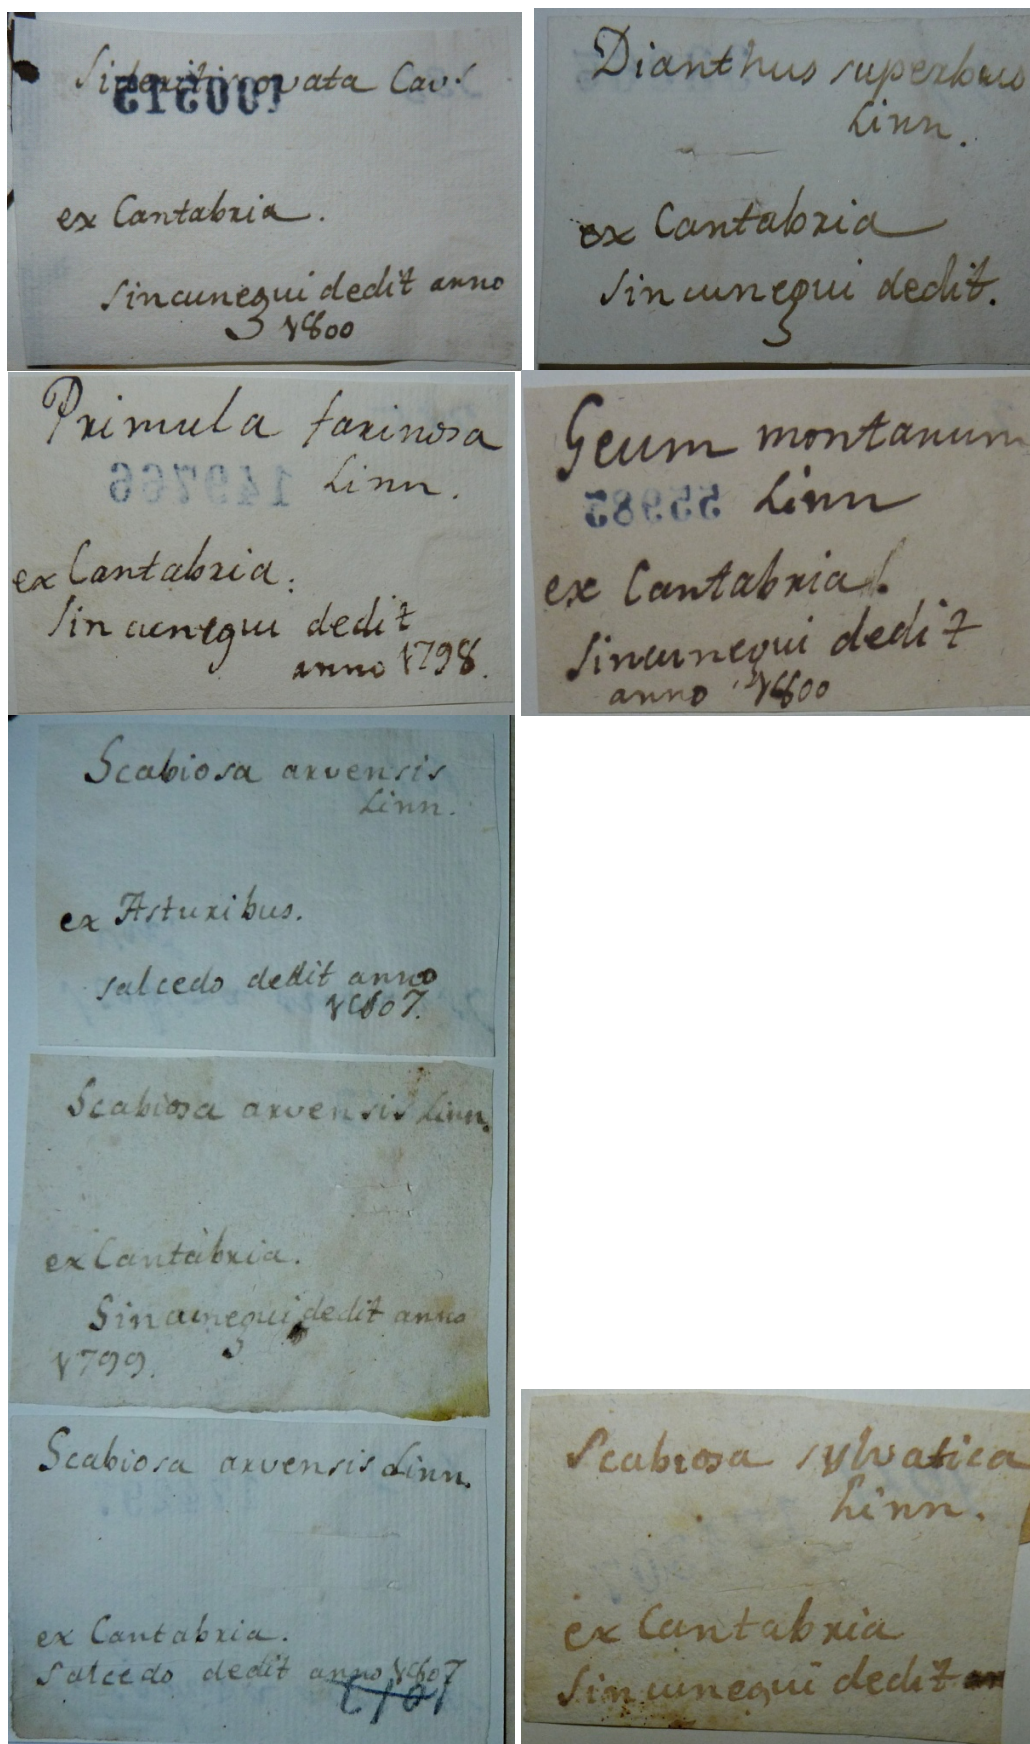 Sideritis ovata Cav.
100313
ex Cantabria.
Sincunegui dedit anno
1800
Dianthus superbus
Linn.
ex Cantabria
Sincunegui dedit.
Primula farinosa
149766
Linn.
ex Cantabria.
Sincunegui dedit
anno 1798.
Geum montanum
55985 Linn
ex Cantabria.
Sincunegui dedit
anno 1800
Scabiosa arvensis
Linn.
ex Asturibus.
Salcedo dedit anno
1807.
Scabiosa arvensis Linn.
ex Cantabria.
Sincunegui dedit anno
1799.
Scabiosa arvensis Linn.
ex Cantabria.
Salcedo dedit anno 1807
Scabiosa sylvatica
Linn.
ex Cantabria
Sincunegui dedit